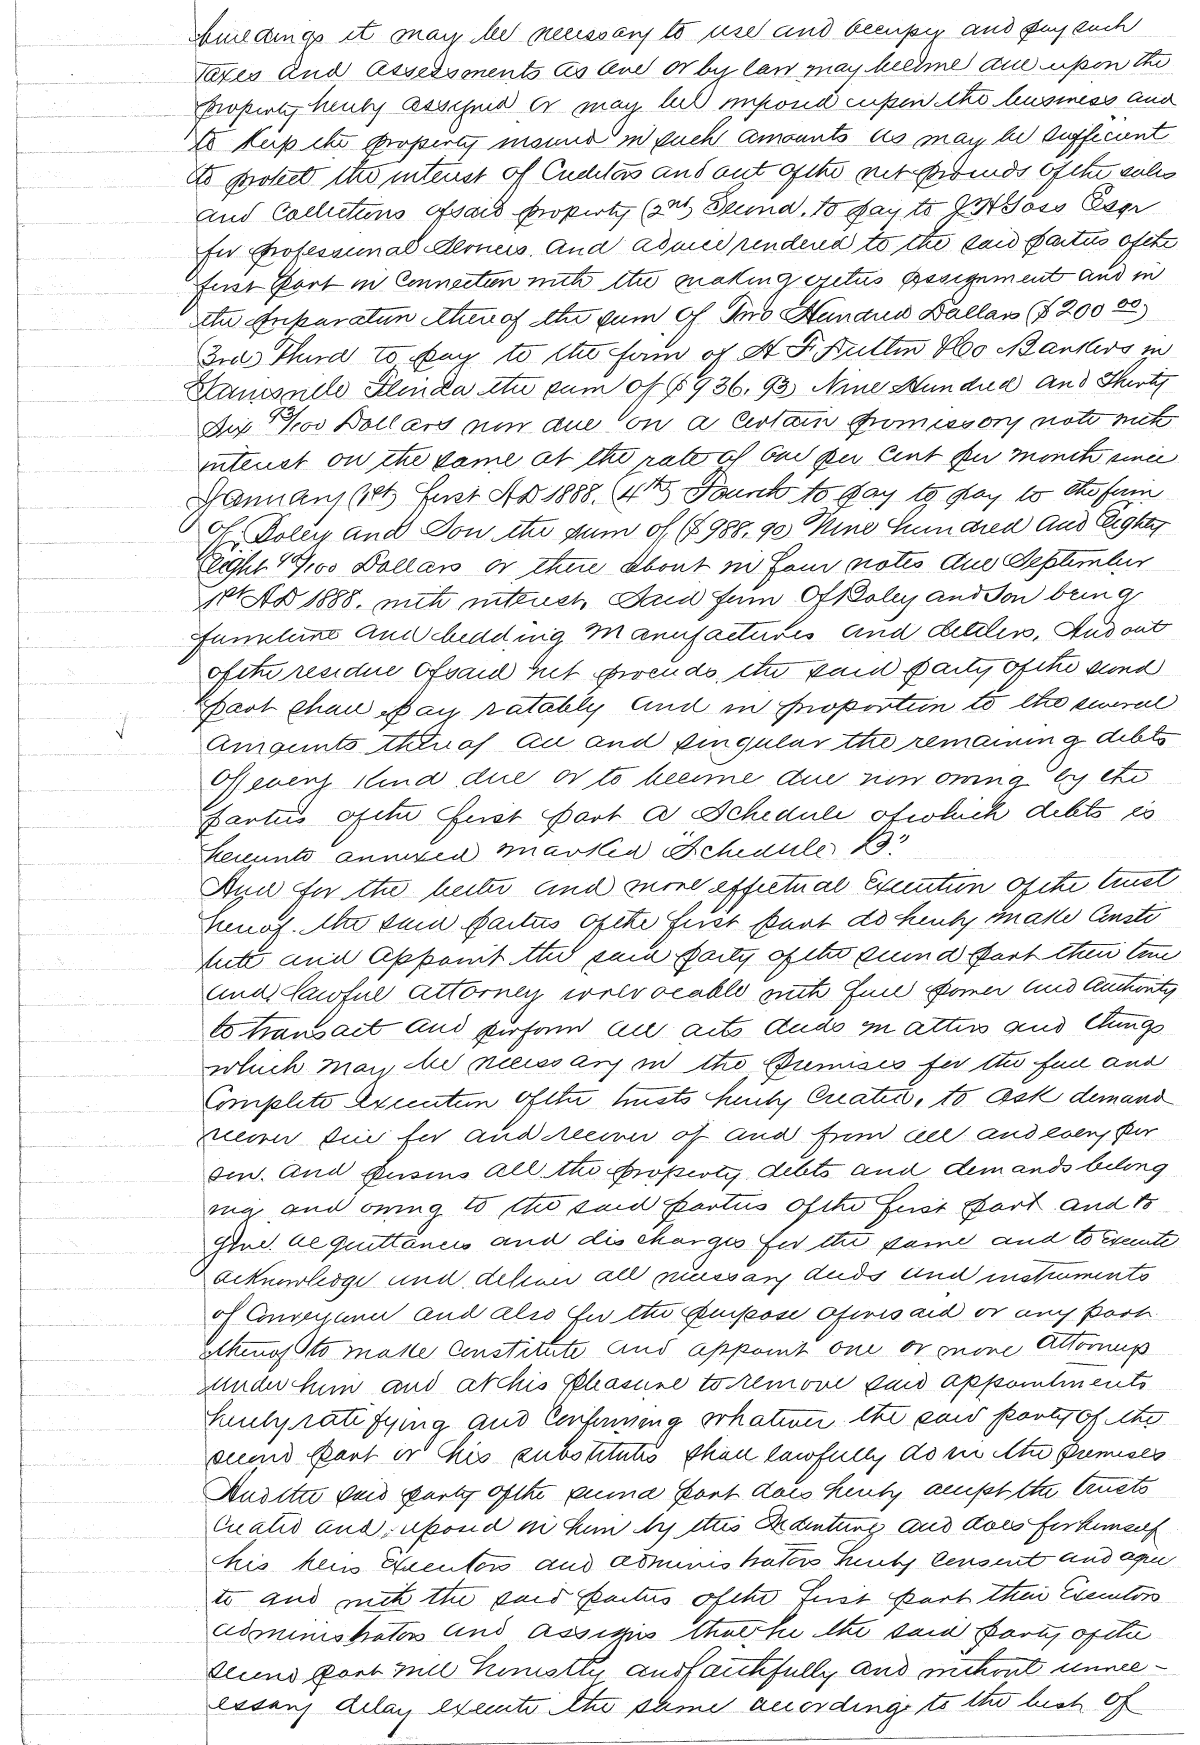 buildings it may be necessary to use and occupy and pay such
taxes and assessments as are or by law may become due upon the
property hereby assigned or may be imposed upon the business and
to keep the property insured in such amounts as may be sufficient
to protect the interest of Creditors and out of the net proceeds of the sales
and Collections of said property (2nd) Second. to pay to J H Goss Esqr
for professional services and advice rendered to the said parties of the
first part in Connection with the making of this assignment and in
the preparation thereof the sum of Two Hundred Dollars ($200 00)
(3rd) Third to pay to the firm of H F Dutton & Co Bankers in
Gainesville Florida the sum of ($936.93) Nine Hundred and Thirty
Six 93/100 Dollars now due on a Certain promissory note with
interest on the same at the rate of one per cent per month since
January (1st) first AD 1888. (4th) Fourth to pay to pay to the firm
of Boley and Son the sum of ($988.90) Nine hundred and Eighty
Eight 90/100 Dollars or there about in four notes due September
1st AD 1888. with interest, Said firm Of Boley and Son being
furniture and bedding manufactures and dealers. And out
of the residue of said net proceeds, the said party of the second
part shall pay ratably and in proportion to the several
amounts thereof all and singular the remaining debts
of every kind due or to become due now owing by the
parties of the first part a Schedule of which debts is
hereunto annexed marked "Schedule B"
And for the better and more effectual Execution of the trust
hereof. the said parties of the first part do hereby make Consti
tute and appoint the said party of the second part their true
and lawful attorney irrevocable with full power and Authority
to transact and perform all acts deeds matters and things
which may be necessary in the premises for the full and
Complete execution of the trusts hereby Created, to ask demand
recover sue for and recover of and from all and every per
son. and persons all the property debts and demands belong
ing and owing to the said parties of the first part and to
give acquittances and discharges for the same and to Execute
acknowledge and deliver all necessary deeds and instruments
of Conveyance and also for the purpose aforesaid or any part
thereof to make Constitute and appoint one or more Attorneys
under him and at his pleasure to remove said appointments
hereby ratifying and Confirming whatever the said party of the
second part or his substitutes shall lawfully do in the premises
And the said party of the second part does hereby accept the trusts
Created and reposed in him by this Indenture and does for himself
his heirs Executors and administrators hereby Consent and agree
to and with the said parties of the first part their Executors
administrators and assigns that he the said party of the
second part will honestly and faithfully and without unnec-
essary delay execute the same according to the best of